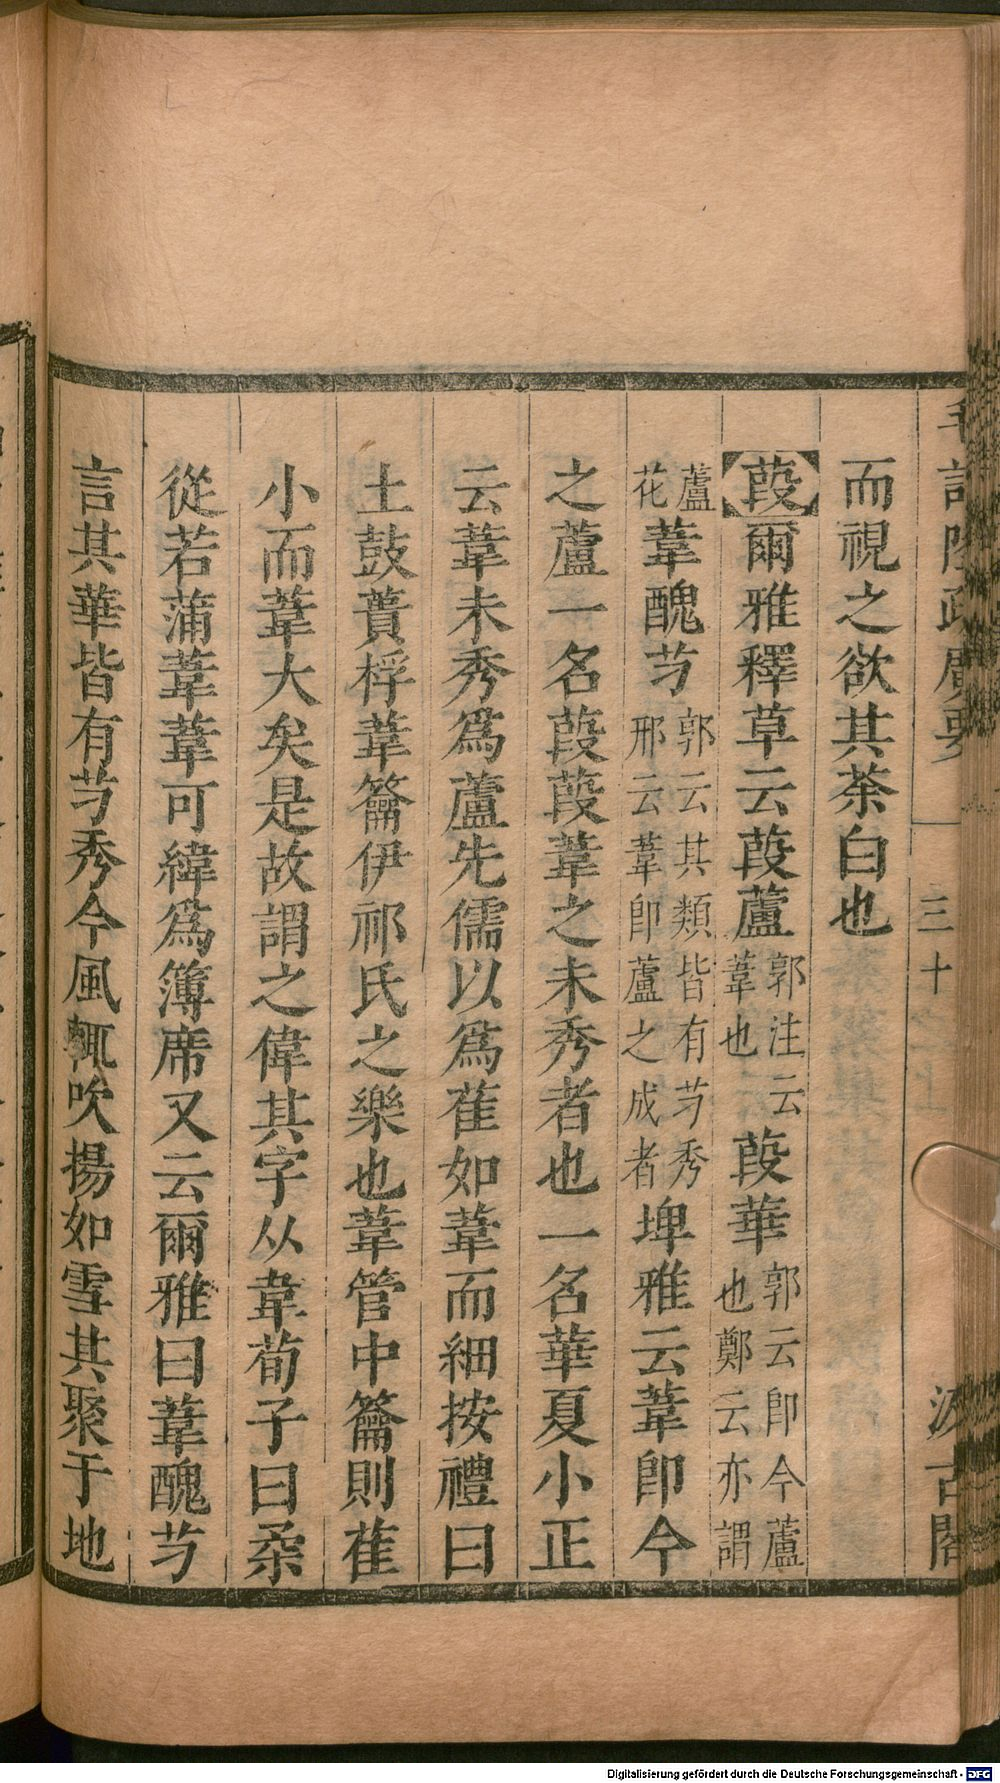 而視之欲其荼白也
葭爾雅釋草云葭蘆郭注云葦也葭華郭云卽今蘆也鄭云亦謂
蘆花葦醜芀郭云其類皆有芀秀邢云葦卽蘆之成者埤雅云葦卽今
之蘆一名葭葭葦之未秀者也一名華夏小正
云葦未秀爲蘆先儒以爲萑如葦而細按禮曰
土鼓蕢桴葦籥伊祁氏之樂也葦管中籥則萑
小而葦大矣是故謂之偉其字从韋荀子曰柔
從若蒲葦葦可緯爲簿席又云爾雅曰葦醜芀
言其華皆有芀秀今風輒吹揚如雪其聚于地
三十
Digitalisierung gefördert durch die Deutsche Forschungsgemeinschaft - DFG